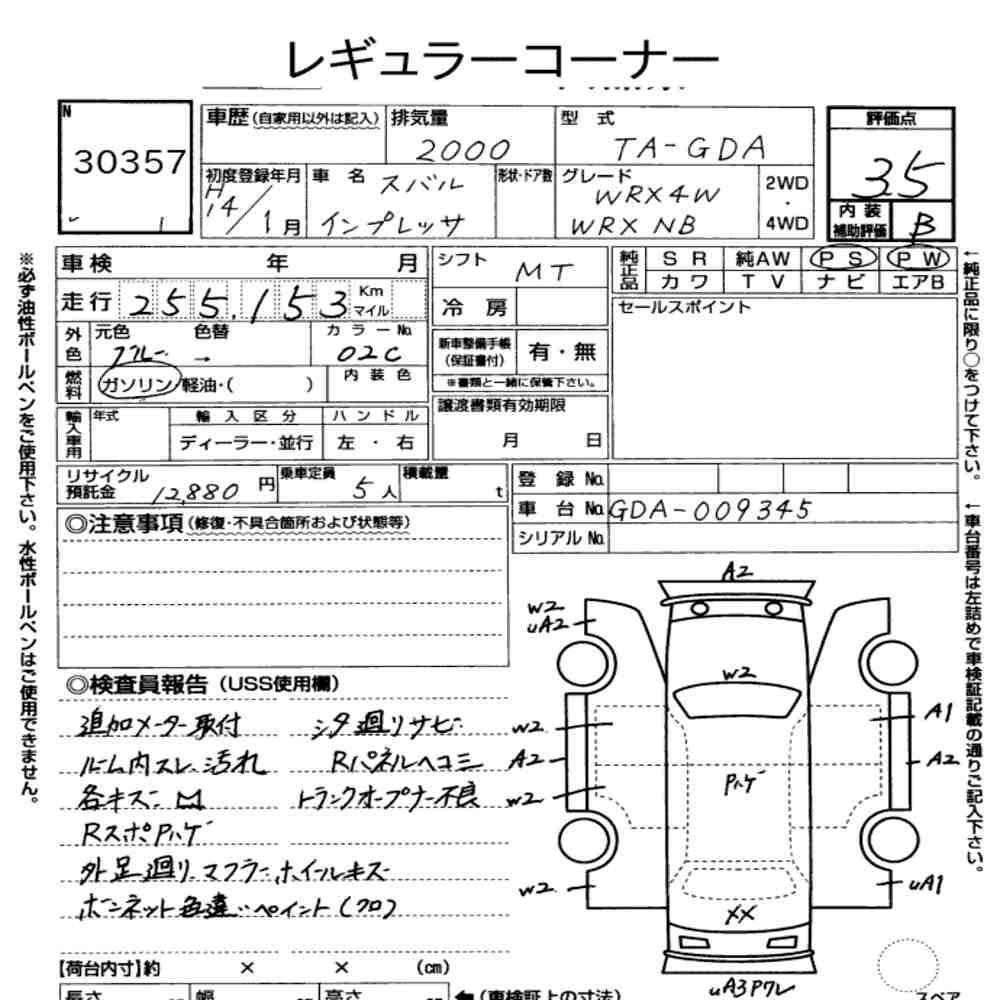 レギュラーコーナー
N
30357
車歴(自家用以外は記入)
排気量
2000
型 式
TA-GDA
評価点
3.5
初度登録年月
H14/1月
車 名
スバル
インプレッサ
形状・ドア数
グレード
WRX4W
WRX NB
2WD
・
4WD
内 装
補助評価
B
※必ず油性ボールペンをご使用下さい。水性ボールペンはご使用できません。
車検 年 月
走行 255,153 Km マイル
外色
元色
ブルー
色替
→
カラーNo.
02C
燃料
ガソリン・軽油・( )
内装色
輸入車用
年式
輸入区分
ディーラー・並行
ハンドル
左 ・ 右
シフト
MT
冷 房
新車整備手帳
(保証書付)
有・無
※書類と一緒に保管下さい。
譲渡書類有効期限
月 日
純正品
SR 純AW PS PW
カワ TV ナビ エアB
セールスポイント
←純正品に限り○をつけて下さい。
リサイクル
預託金 12,880 円
乗車定員
5人
積載量
t
登 録 No.
車 台 No. GDA-009345
シリアル No.
←車台番号は左詰めで車検証記載の通りご記入下さい。
◎注意事項(修復・不具合箇所および状態等)
◎検査員報告(USS使用欄)
追加メーター取付
シタ廻リサビ
ルーム内スレ.汚れ
Rパネルヘコミ
各キズ凹
トランクオープナー不良
RスポPハゲ
外足廻リ.マフラー.ホイールキズ
ボンネット色違ペイント(クロ)
A2
W2
uA2
W2
W2
A1
A2
A2
Pハゲ
W2
W2
uA1
XX
uA3Pワレ
【荷台内寸】約 × × (cm)
長さ
幅
高さ
←(車検証上の寸法)
スペア